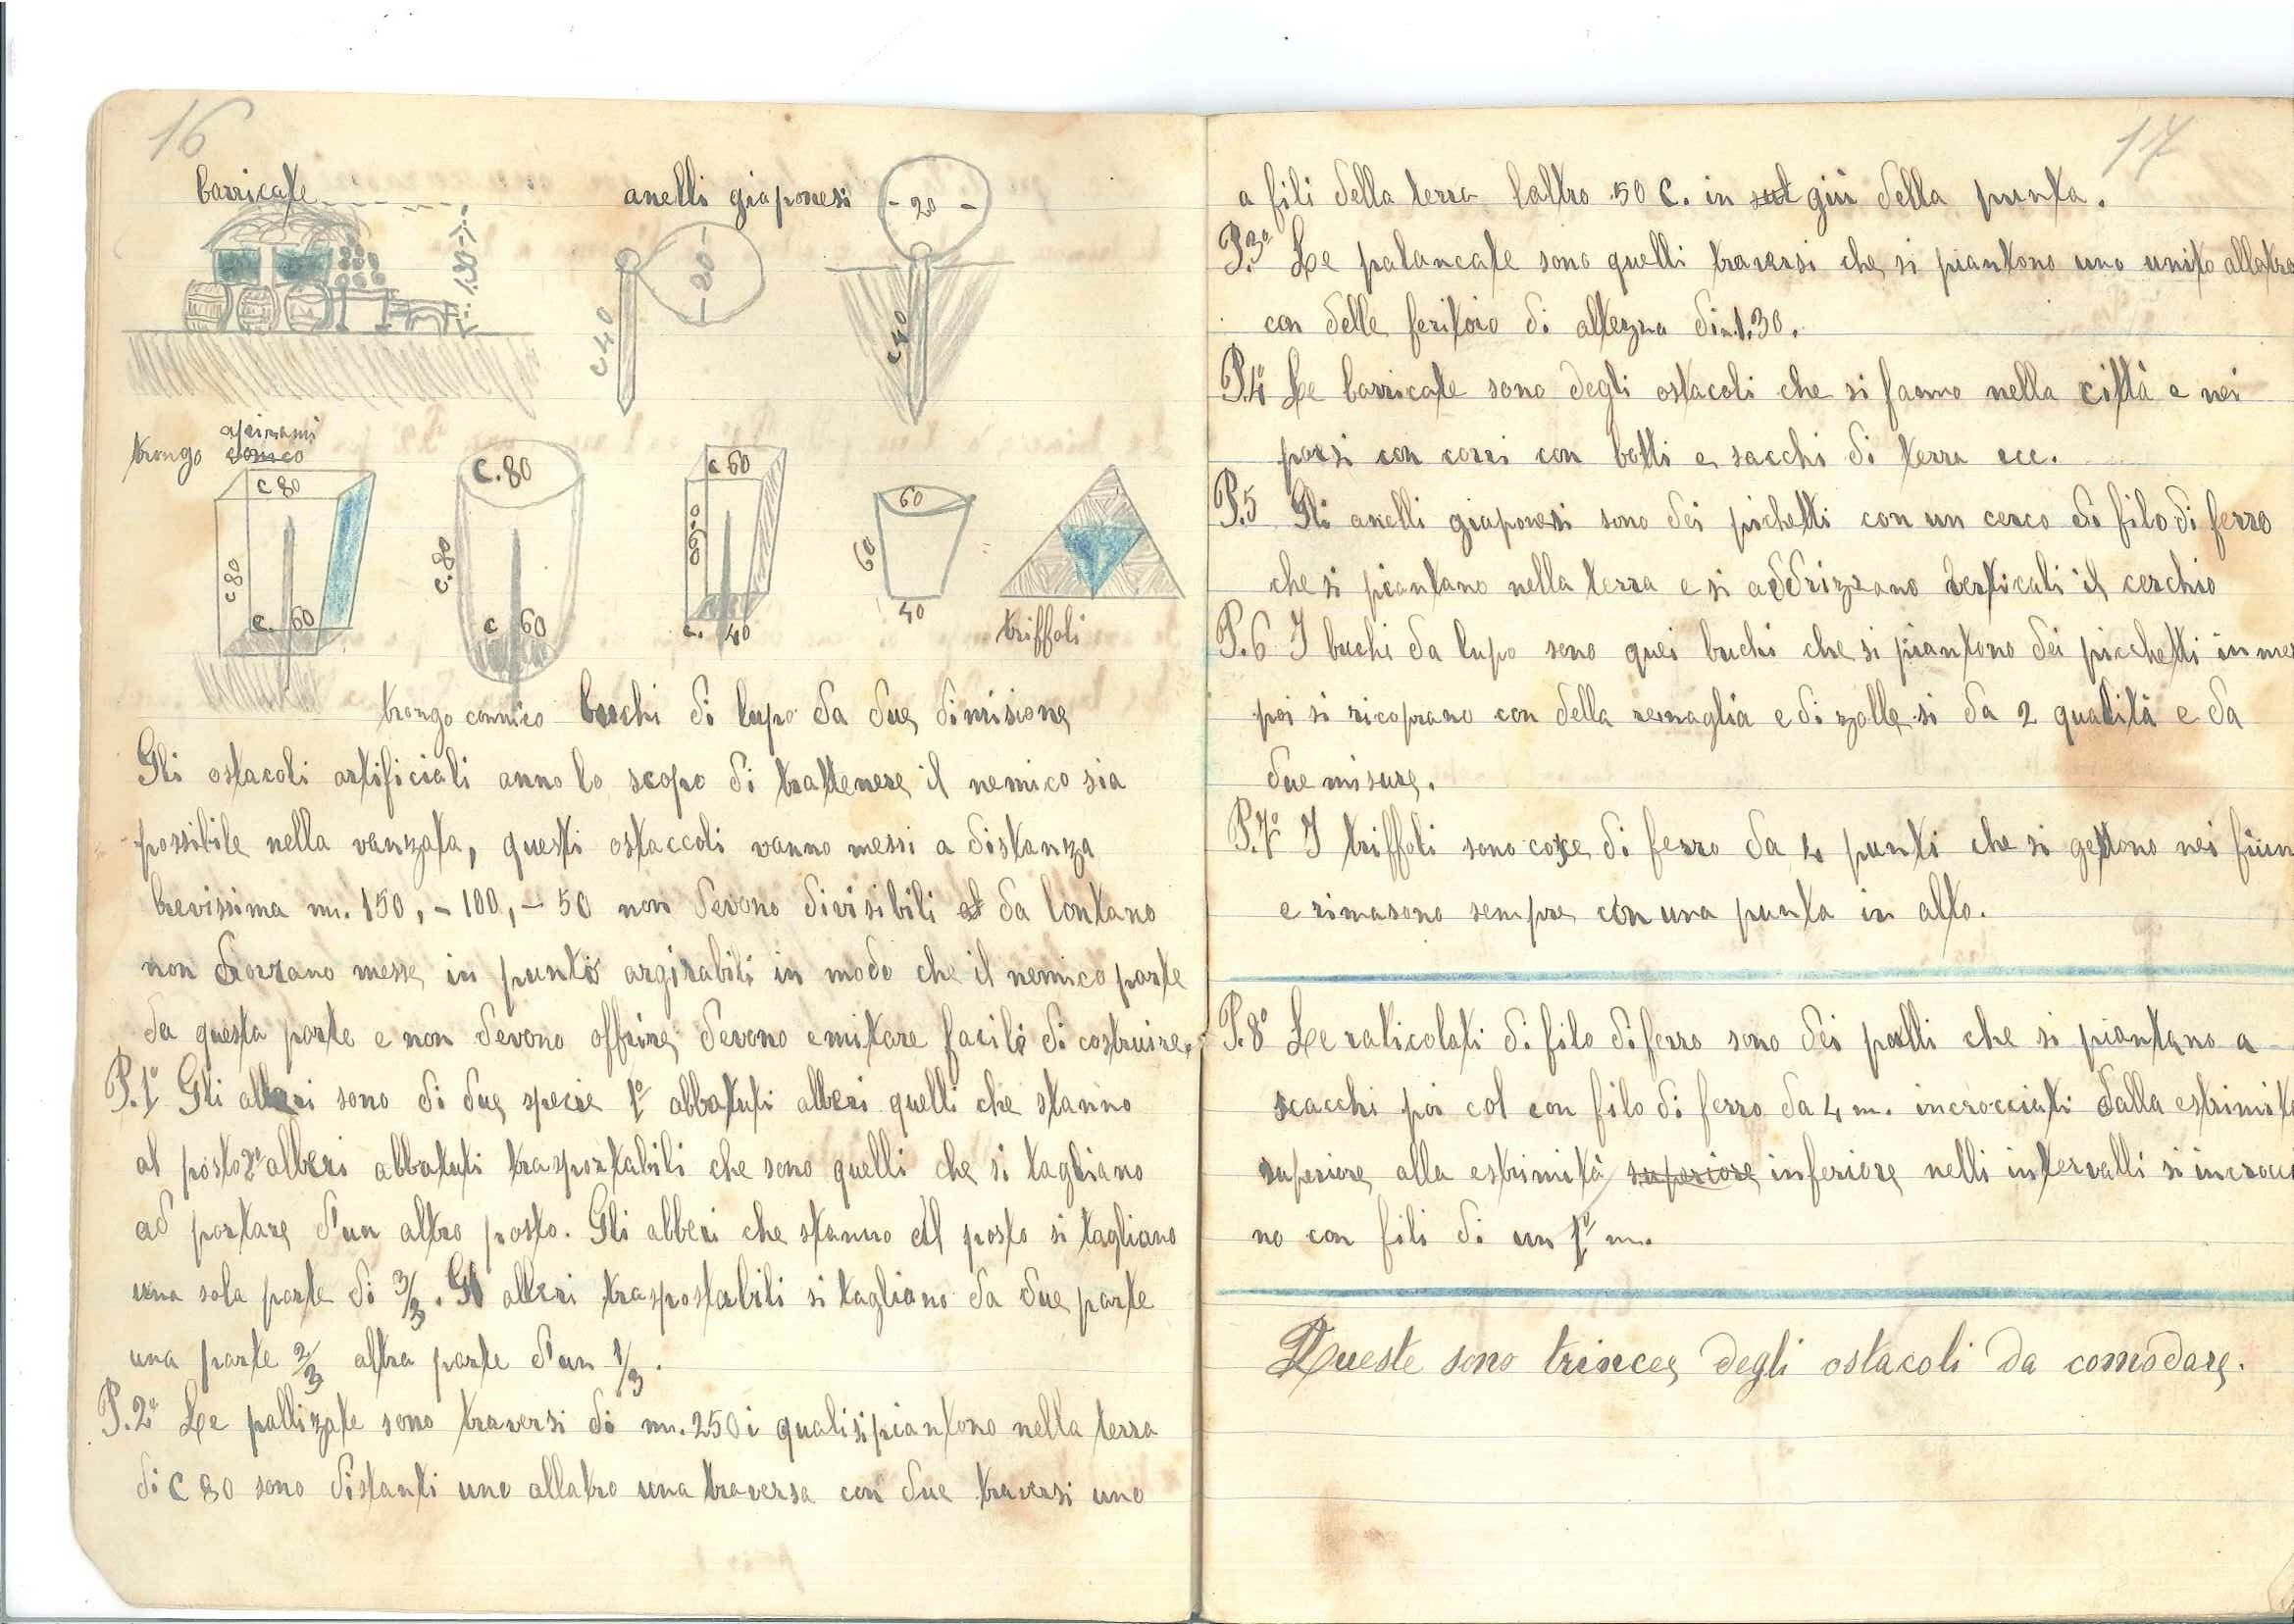 16
barricate
anelli giaponesi
- 20 -
- 20 -
1.30
c 40
c 40
trongo apirami
conico
c 80
c 80
c. 60
c. 80
c. 80
c 60
c 60
c. 40
60
60
40
triffoli
trongo connico buchi di lupo da due dimisione
Gli ostacoli artificiali anno lo scopo di trattenere il nemico sia
possibile nella vanzata, questi ostaccoli vanno messi a distanza
brevissima m. 150, - 100, - 50 non devono divisibili da lontano
non messe in punti argirabili in modo che il nemico parte
da questa parte e non devono offrire devono emitare facili di costruire.
P.1° Gli alberi sono di due specie 1° abbatuti alberi quelli che stanno
al posto 2° alberi abbatuti trasportabili che sono quelli che si tagliano
ad portare d'un altro posto. Gli alberi che stanno al posto si tagliano
una sola parte di 3/3. Gli alberi traspostabili si tagliano da due parte
una parte 2/3 altra parte d'un 1/3.
P.2° Le pallizate sono traversi di m. 250 i quali si piantono nella terra
di c 80 sono distanti uno allatro una traversa con due traversi uno
17
a fili della terra laltro 50 c. in sut giù della punta.
P.3° Le palancate sono quelli traversi che si piantono uno unito allatro
con delle feritoio di altezza di m 1.30.
P.4° Le barricate sono degli ostacoli che si fanno nella città e nei
paesi con carri con botti e sacchi di terra ecc.
P.5 Gli anelli giaponesi sono dei pichetti con un cerco di filo di ferro
che si piantano nella terra e si addrizzano verticali il cerchio
P.6 I buchi da lupo sono quei buchi che si piantono dei picchetti in me
poi si ricoprano con della ramaglia e di zolle si da 2 qualità e da
due misure.
P.7° I triffoli sono cose di ferro da 4 punti che si gettono nei fium
e rimasono sempre con una punta in alto.
P.8° Le raticolati di filo di ferro sono dei palli che si piantano a
scacchi poi col con filo di ferro da 4 m. incrocciati dalla estrimita
superiore alla estrimità superiore inferiore nelli intervalli si incrocci
no con fili di un 1° m.
Queste sono trincee degli ostacoli da comodare.